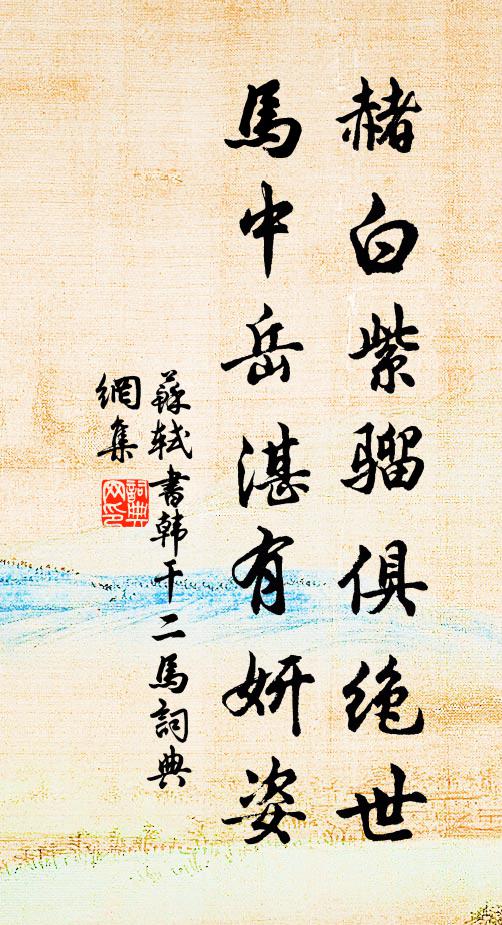 赭白紫骝俱绝世
馬中岳湛有妍姿
蘇軾書韩干二馬詞典
網集
詞典
网印